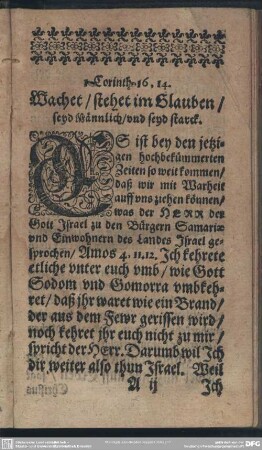 1. Corinth. 16, 14.
Wachet / stehet im Glauben /
seyd Männlich / vnd seyd starck.
ES ist bey den jetzi-
gen hochbekümmerten
Zeiten so weit kommen /
daß wir mit Warheit
auff vns ziehen können /
was der HERR der
Gott Israel zu den Bürgern Samariæ
vnd Einwohnern des Landes Israel ge-
sprochen / Amos 4. 11, 12. Ich kehrete
etliche vnter euch vmb / wie Gott
Sodom vnd Gomorra vmbkeh-
ret / daß jhr waret wie ein Brand /
der aus dem Fewr gerissen wird /
noch kehret jhr euch nicht zu mir /
spricht der HErr. Darumb wil Ich
dir weiter also thun Israel. Weil
A ij Ich